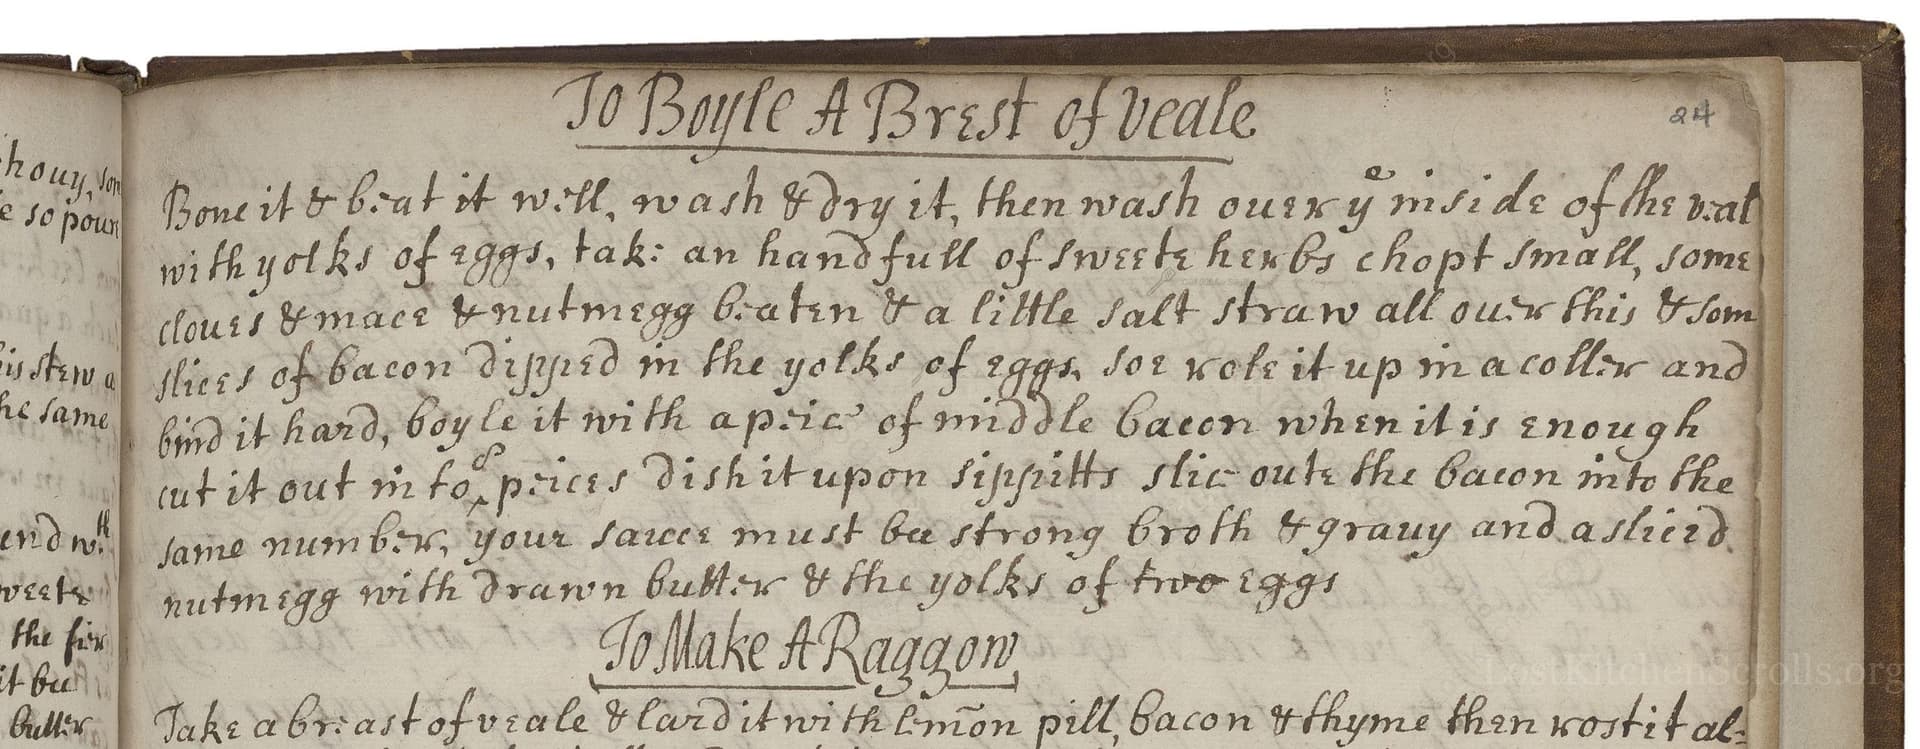 houy, som
e so pour
his stew a
he same
end wth
weete
the fier
it bee
butter
To Boyle A Brest of veale
24
Bone it & beat it well, wash & dry it, then wash ouer ye inside of the veal
with yolks of eggs, take an handfull of sweete herbs chopt small, some
cloues & mace & nutmegg beaten & a little salt straw all ouer this & som
slices of bacon dipped in the yolks of eggs, soe role it up in a coller and
bind it hard, boyle it with a peice of middle bacon when it is enough
cut it out into 8 peices dish it upon sippitts slice oute the bacon into the
same number, your sauce must bee strong broth & grauy and a sliced
nutmegg with drawn butter & the yolks of two eggs
To Make A Raggow
Take a breast of veale & lard it with lemōn pill, bacon & thyme then rost it al-
LostKitchenScrolls.org